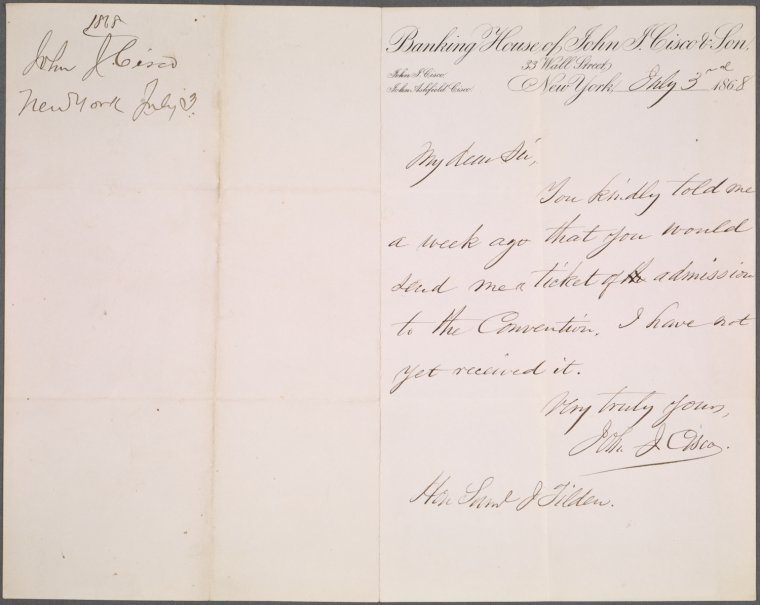 1868
John J. Cisco
New York July 3.
Banking House of John J. Cisco & Son,
33 Wall Street,
John J. Cisco
John Ashfield Cisco
New York, July 3rd 1868
My dear Sir,
You kindly told me
a week ago that you would
send me a ticket of admission
to the Convention. I have not
yet received it.
Very truly yours,
John J Cisco.
Hon Saml J Tilden.